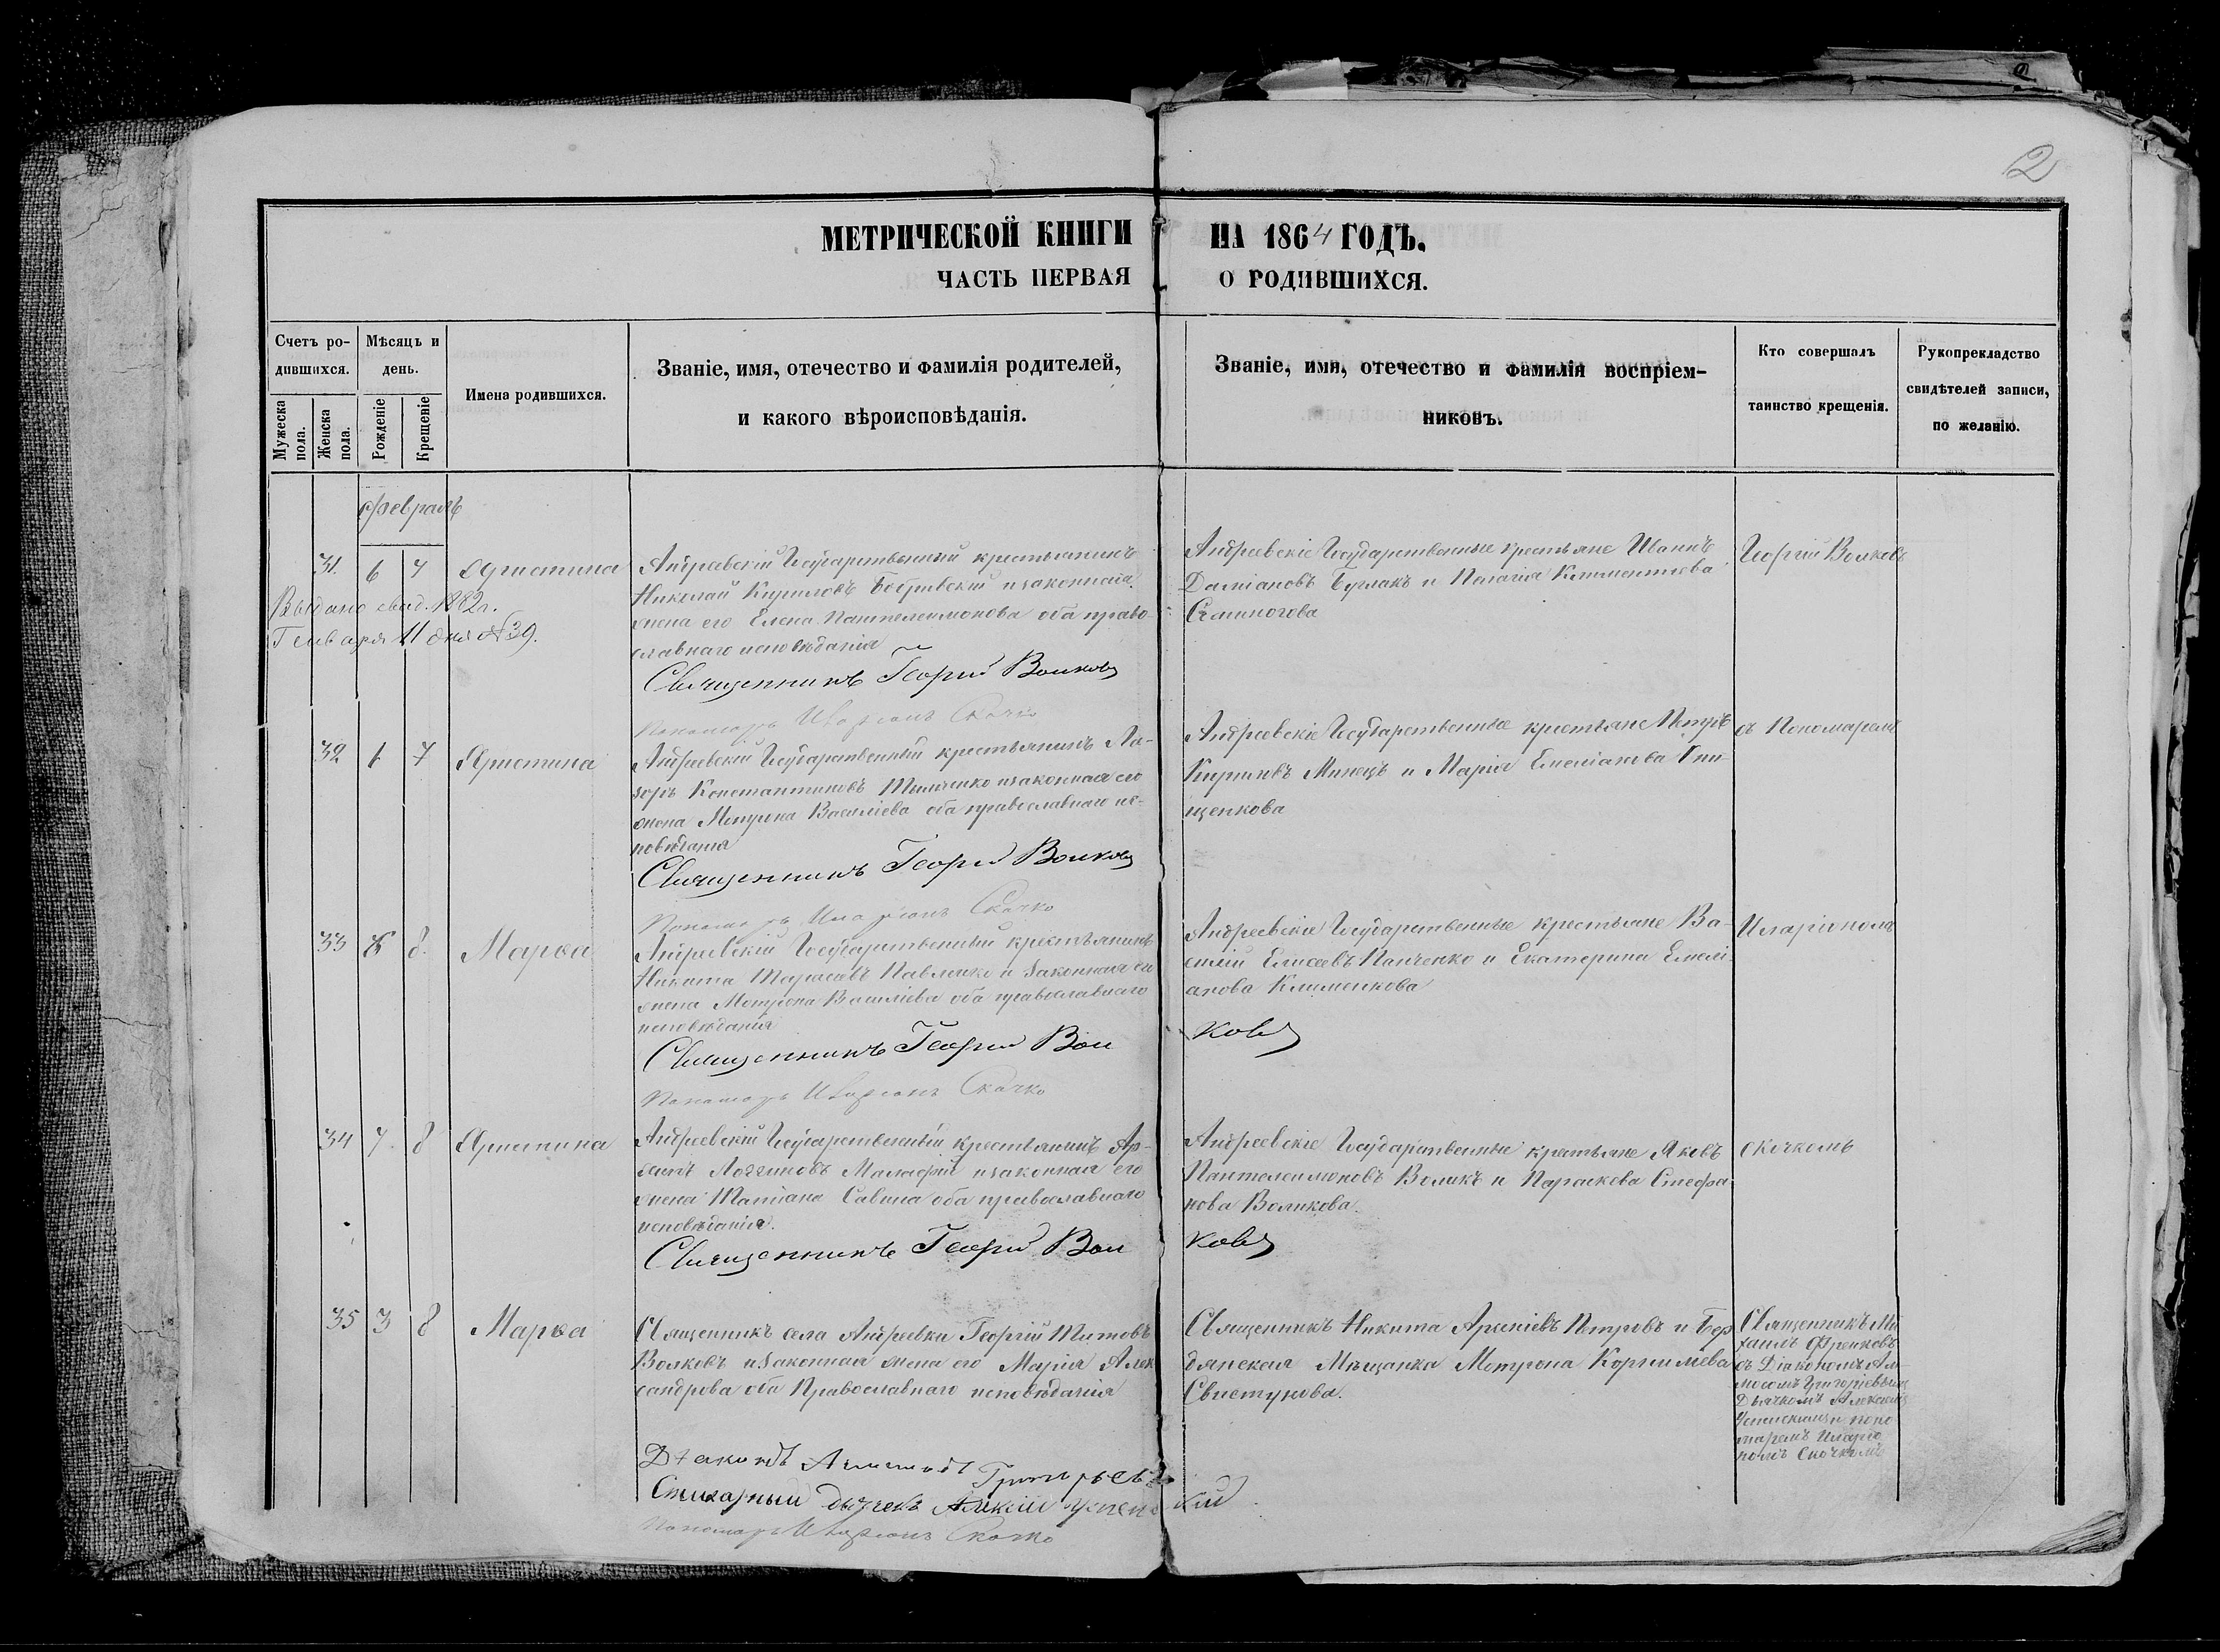 2
МЕТРИЧЕСКОЙ КНИГИ НА 1864 ГОДЪ.
ЧАСТЬ ПЕРВАЯ О РОДИВШИХСЯ.
Счетъ ро-
дившихся.
Мужеска пола.
Женска пола.
Мѣсяцъ и
день.
Рожденіе
Крещеніе
Имена родившихся.
Званіе, имя, отечество и фамилія родителей,
и какого вѣроисповѣданія.
Званіе, имя, отечество и фамилія воспріем-
никовъ.
Кто совершалъ
таинство крещенія.
Рукоприкладство
свидѣтелей записи,
по желанію.
февраль
31. 6 7 Христина
Выдано свид. 1882 г.
Генваря 11 дня №39.
Андреевскій Государственный крестьянинъ
Николай Кириловъ и законная
жена его Елена Пантелеимонова оба право-
славнаго исповѣданія
Священникъ Георгій Волковъ
Пономарь Иларіонъ Скочко
Андреевскіе Государственные крестьяне Иванъ
Даміановъ Бурлакъ и Пелагія Климентіева
Георгій Волковъ
32 6 7 Христина
Андреевскій Государственный крестьянинъ Ла-
зорь Константиновъ и законная его
жена Мотрона Василіева оба православнаго ис-
повѣданія
Священникъ Георгій Волковъ
Пономарь Иларіонъ Скочко
Андреевскіе Государственные крестьяне Петръ
Кириловъ и Марія Емеліанова
щенкова
съ Пономаремъ
33 8. Марѳа
Андреевскій Государственный крестьянинъ
Никита Тарасовъ Павленко и законная его
жена Мотрона Василіева оба православнаго
исповѣданія
Священникъ Георгій Вол ковъ
Пономарь Иларіонъ Скочко
Андреевскіе Государственные крестьяне Ва-
силій Елисеевъ Панченко и Екатерина Емелі-
анова Клименкова
Иларіономъ
34 7. 8 Христина
Андреевскій Государственный крестьянинъ Ар-
Логгиновъ и законная его
жена Татіана Савина оба православнаго
исповѣданія.
Священникъ Георгій Вол ковъ
Андреевскіе Государственные крестьяне Яковъ
Пантелеимоновъ Воликъ и Параскева Стефа-
нова Воликова.
Скочкомъ
35 3 8 Марѳа
Священникъ села Андреевки Георгій Титовъ
Волковъ и законная жена его Марія Алек-
сандрова оба Православнаго исповѣданія
Діаконъ Григорьевъ
Стихарный дьячекъ Алексій Успенскій
Пономарь Иларіонъ Скочко
Священникъ Никита Арсеніевъ Петровъ и Бер-
дянская Мѣщанка Мотрона Корнилиева
Свистунова.
Священникъ Ми-
хаилъ
съ Діакономъ Ам-
мосомъ Григоріевымъ
Дьячкомъ Алексіемъ
Успенскимъ и поно-
маремъ Иларіо-
номъ Скочкомъ